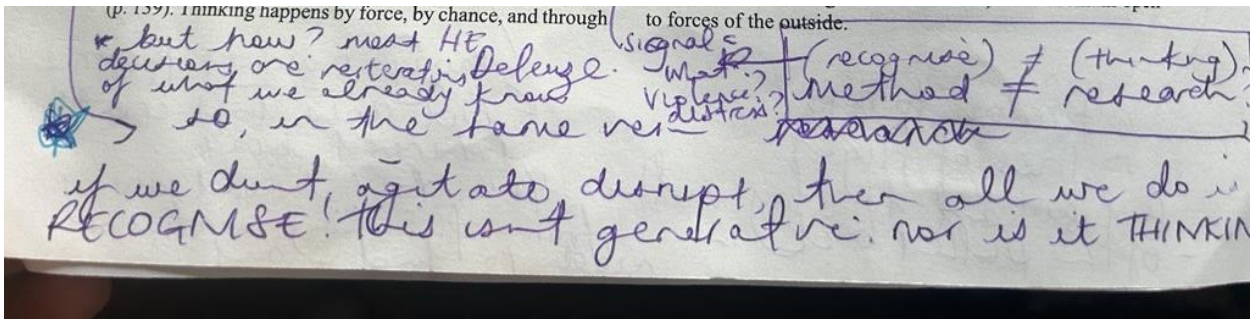 (p. 159). Thinking happens by force, by chance, and through
to forces of the outside.
* but how? most HE
decisions are reiterating
of what we already know
Deleuze.
signals
what?
violence?
distress?
(recognise) ≠ (thinking)
Method ≠ research
so, in the same vein research
if we dunt, agitate, disrupt, then all we do i
RECOGNISE! this isnt generative. nor is it THINKIN